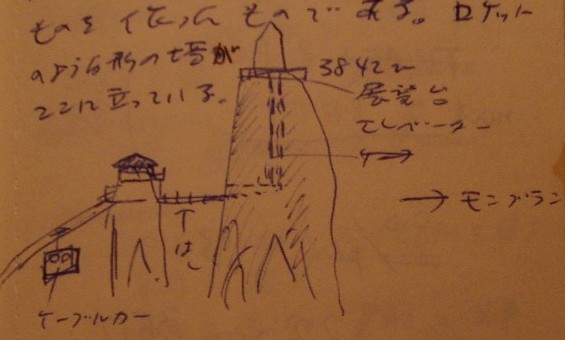 ものを作ったものである。ロケット
のような形の塔が
ここに立っている。
3842m
展望台
エレベーター
→ モンブラン
↑はし
ケーブルカー